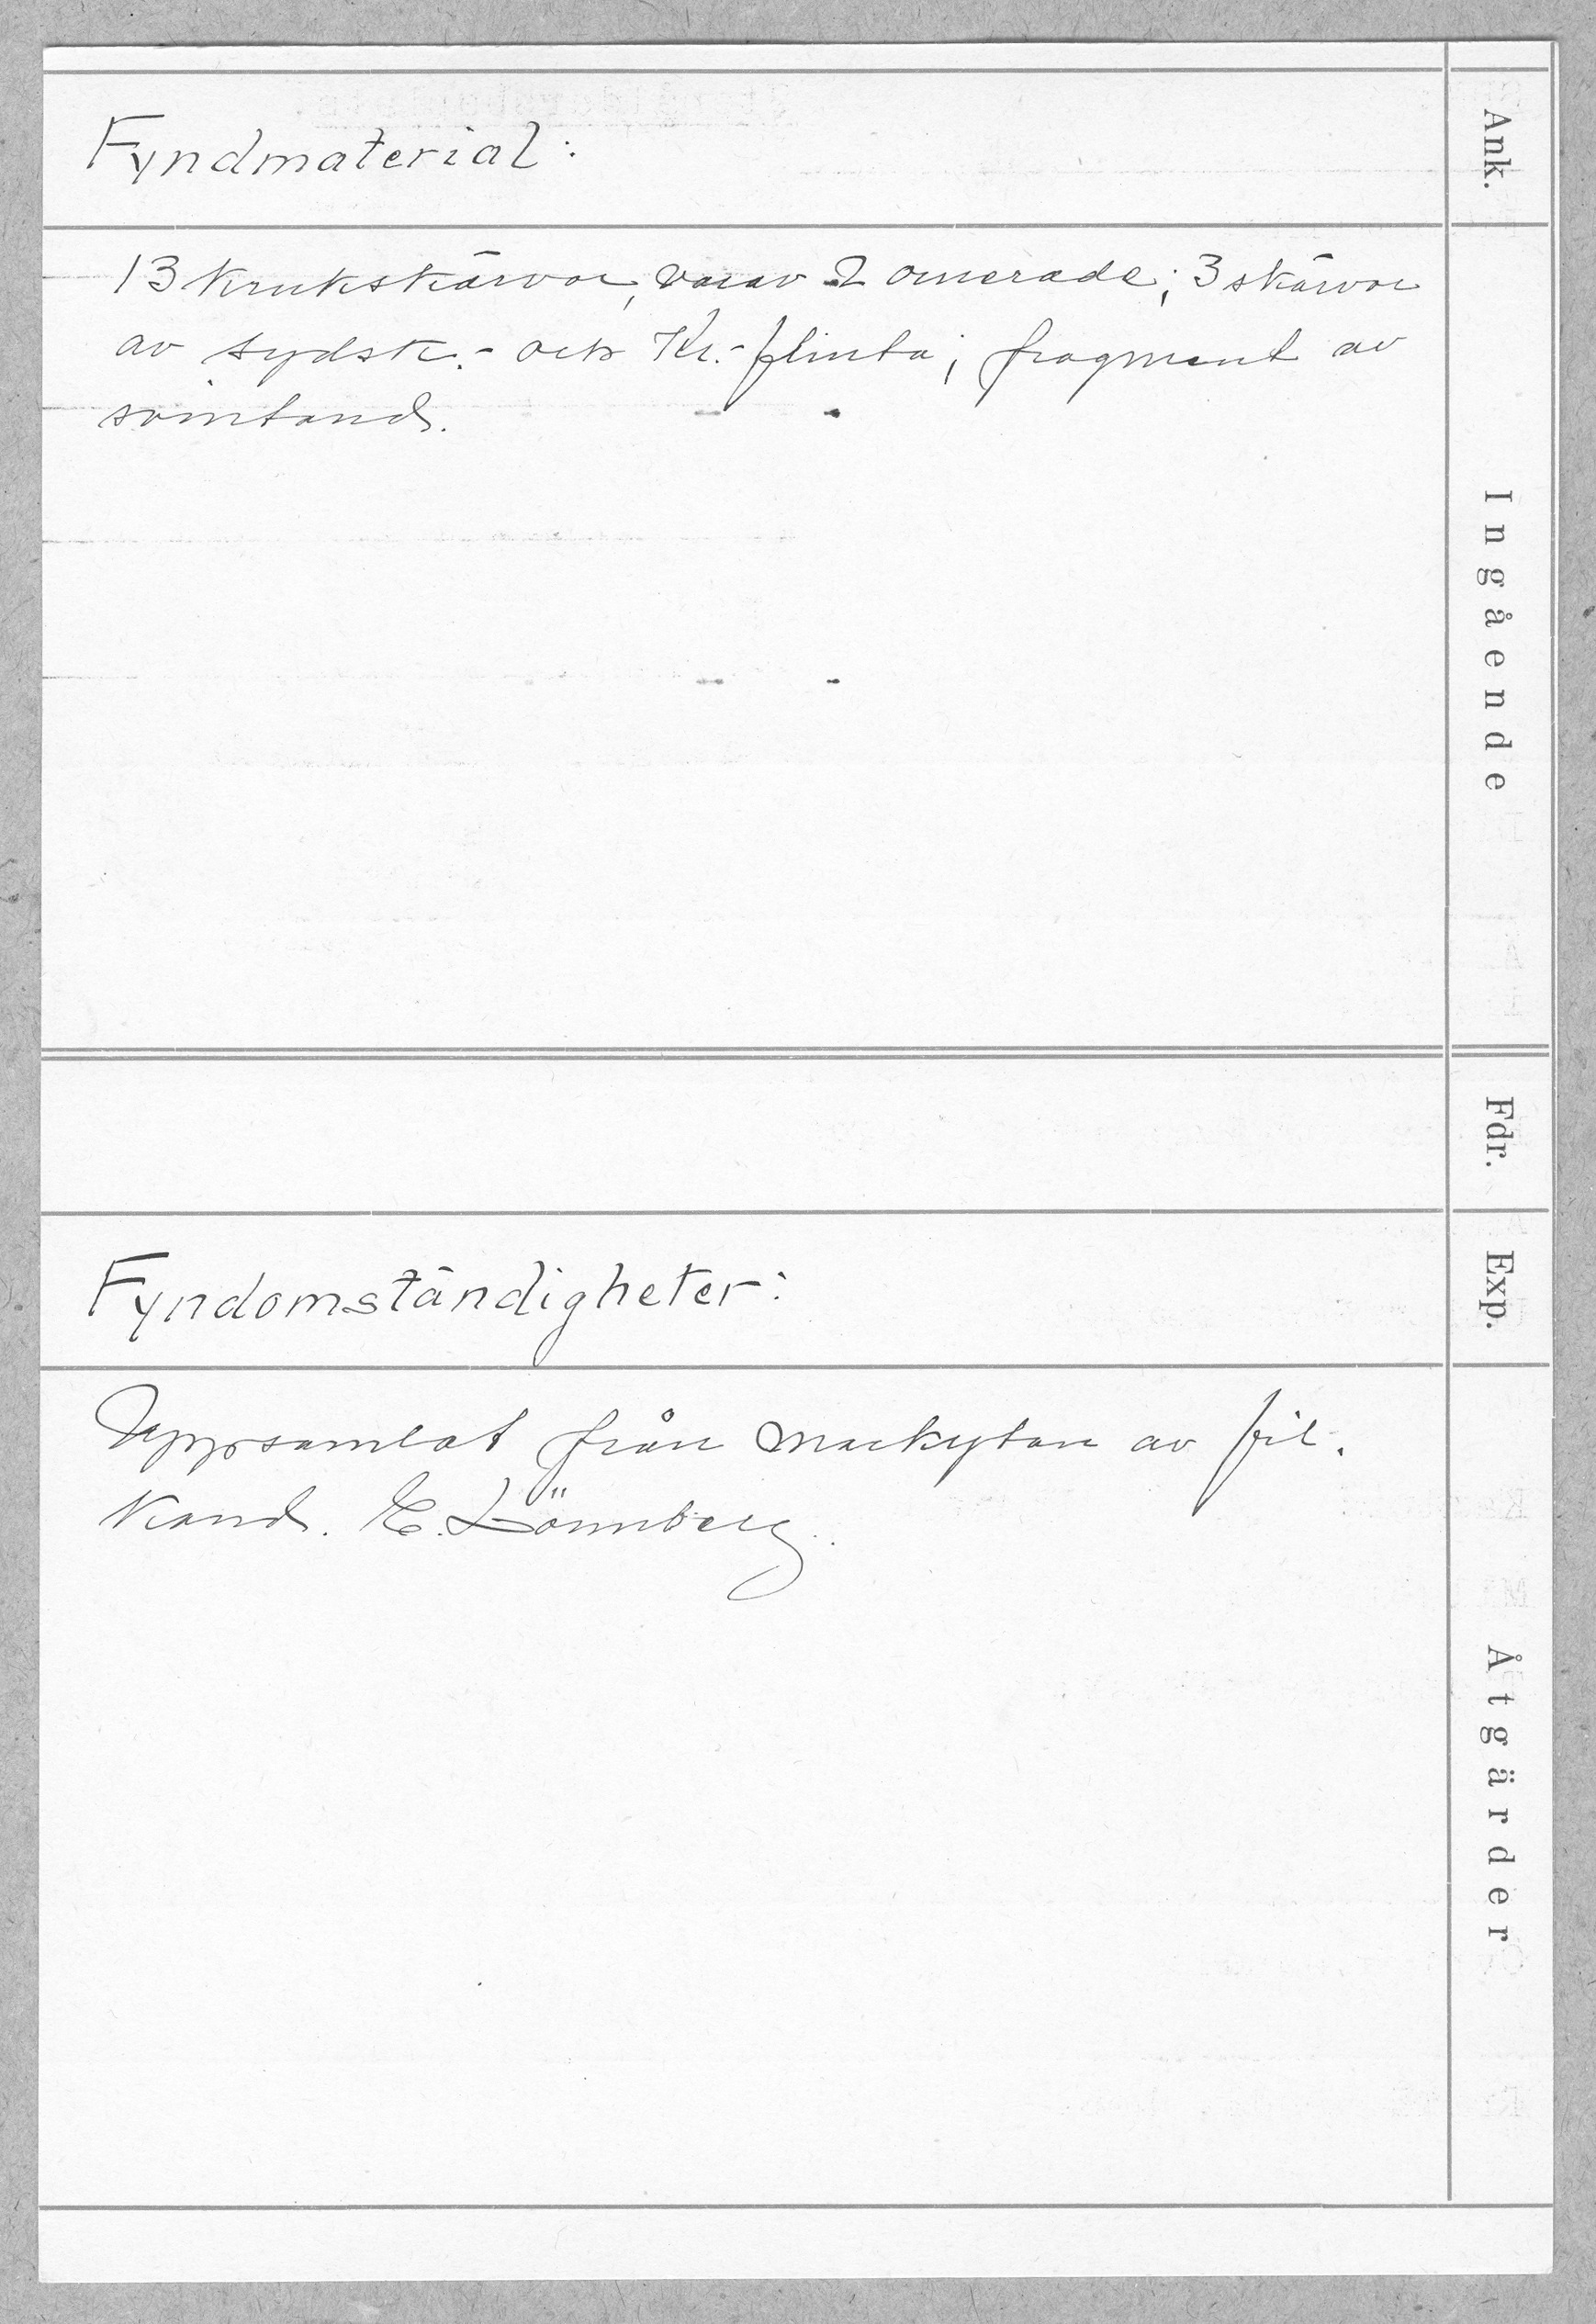 Ank.
Fyndmaterial:
Ingående
13 krukskärvor, varav 2 ornerade; 3 skärvor
av sydsk.- och Kr.-flinta; fragment av
svintand.
Fdr.
Exp.
Fyndomständigheter:
Åtgärder
Uppsamlat från markytan av fil.
kand. E. Lönnberg.